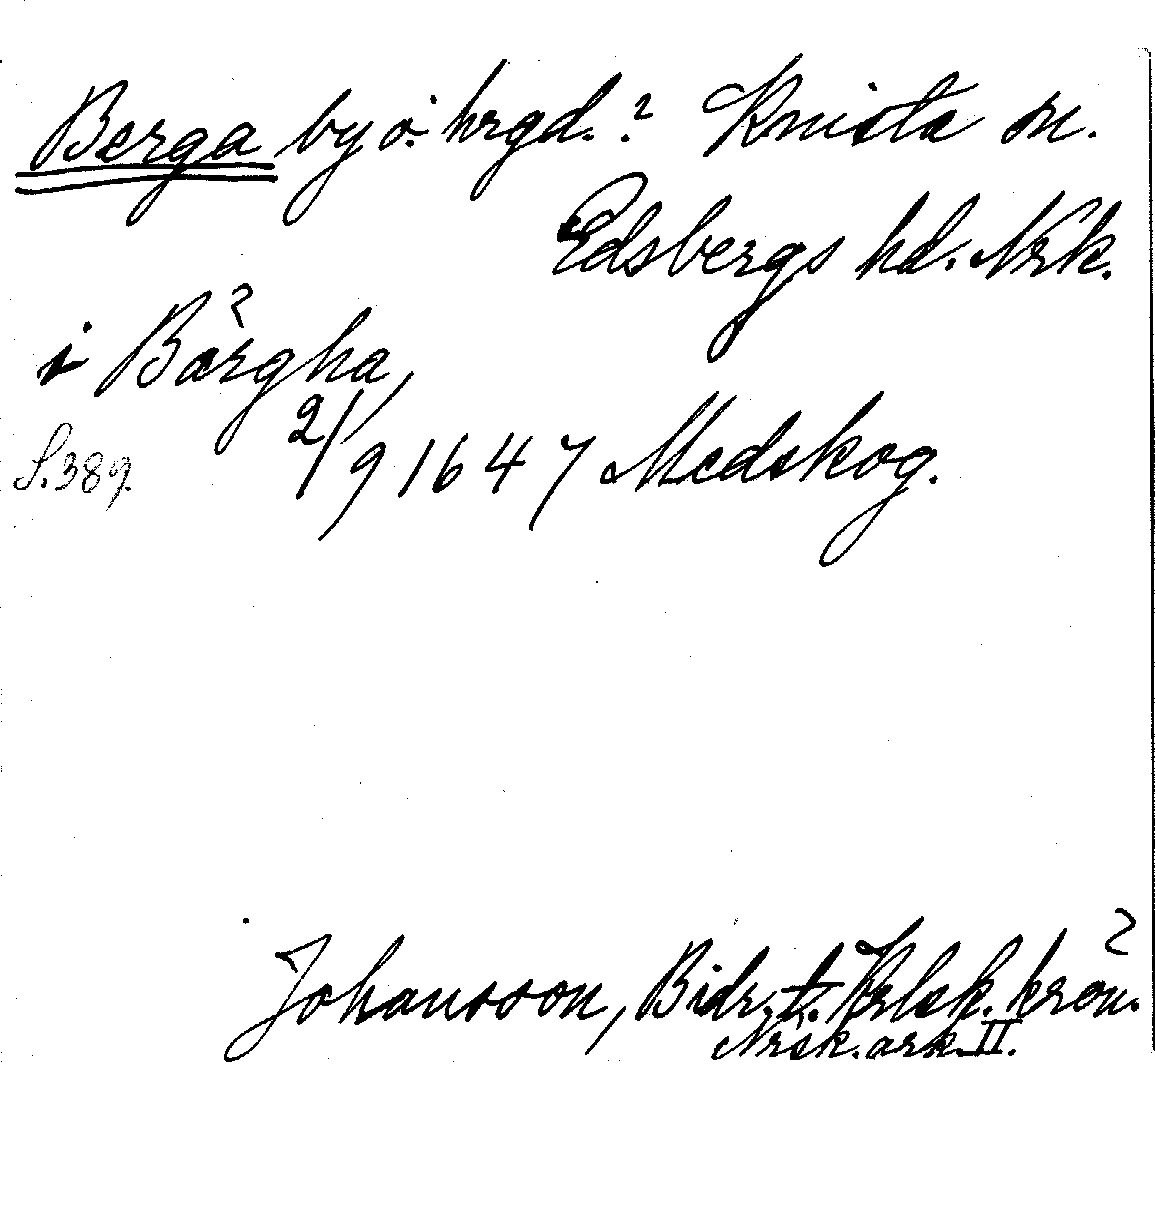 Berga by o. hrgd.? Knista sn.
Edsbergs hd. Nrk.
i Bärgha,
S. 389. 2/9 1647 Medskog.
Johansson, Bidr. t. Krlsk. krön.
Nrsk. ark. II.